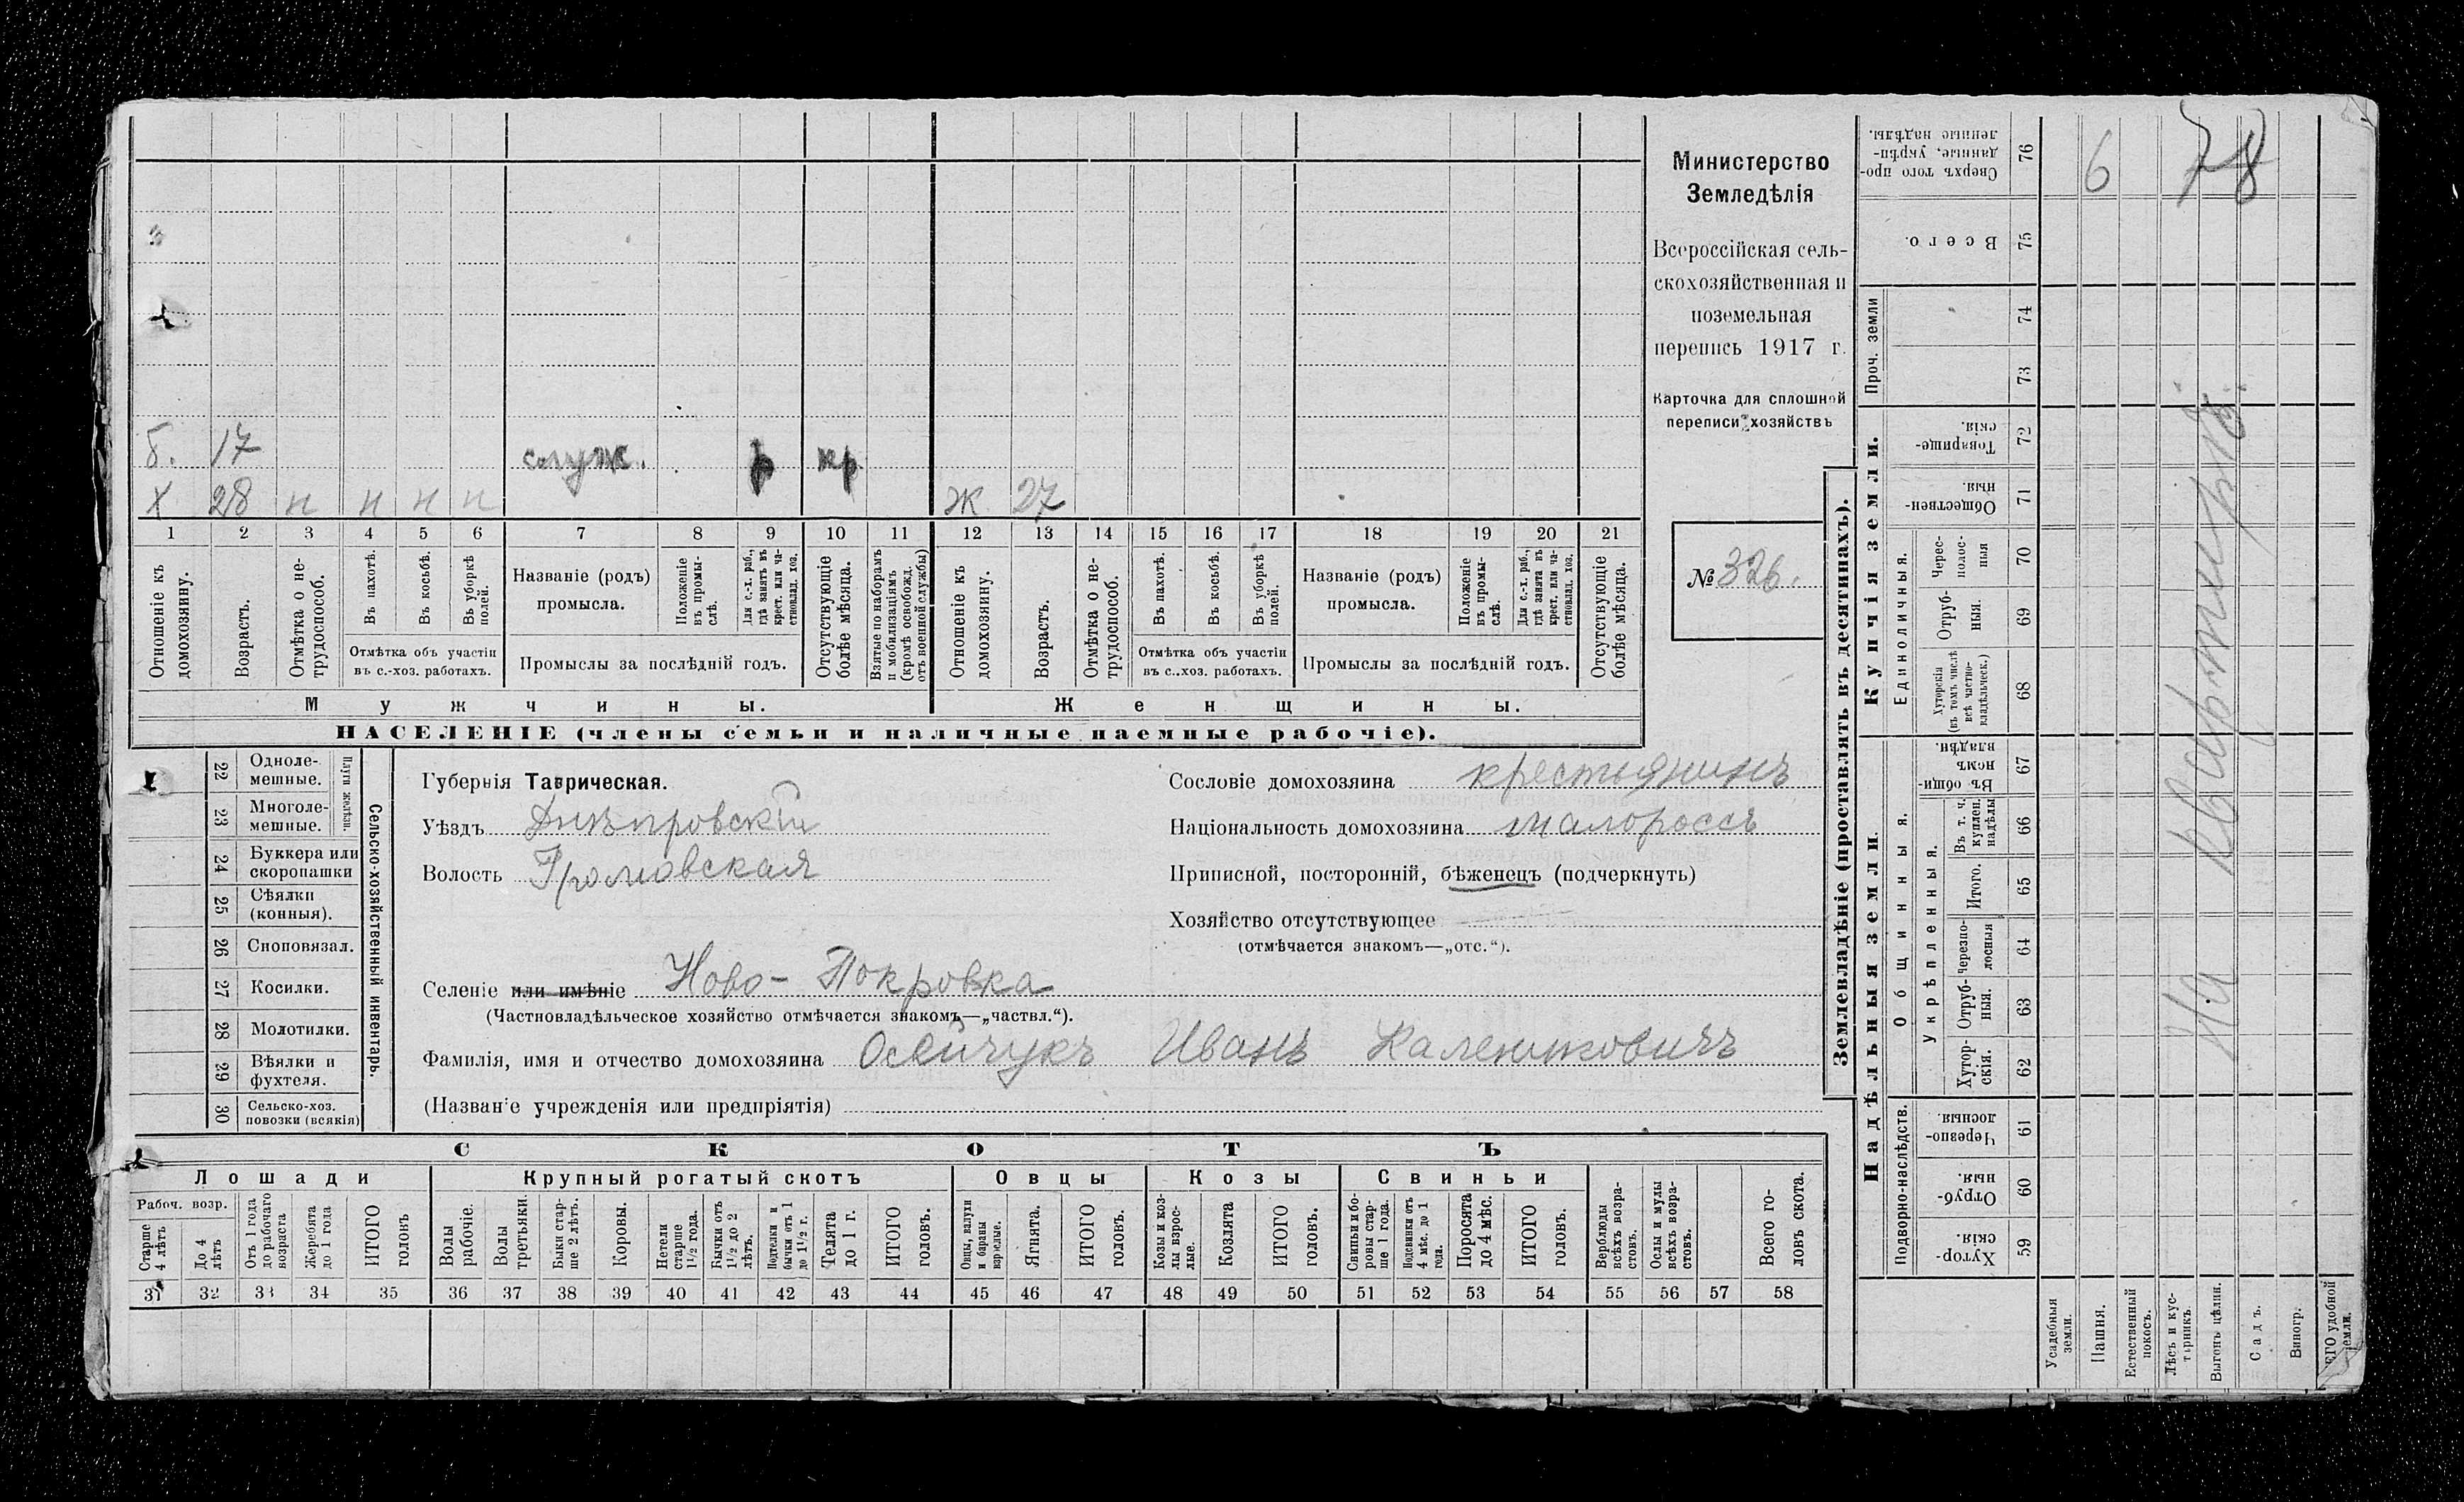 б. 17 служ. р кр.
Х 28 н н н н Ж 27
1 2 3 4 5 6 7 8 9 10 11 12 13 14 15 16 17 18 19 20 21
Отношеніе къ домохозяину.
Возрастъ.
Отмѣтка о нетрудоспособ.
Въ пахотѣ.
Въ косьбѣ.
Въ уборкѣ полей.
Отмѣтка объ участіи
въ с.-хоз. работахъ.
Названіе (родъ)
промысла.
Положеніе въ промыслѣ.
Для с.-х. раб., гдѣ занятъ въ крест. или частновлад. хоз.
Промыслы за послѣдній годъ.
Отсутствующіе болѣе мѣсяца.
Взятые по наборамъ и мобилизаціямъ (кромѣ освобожд. отъ военной службы)
Отношеніе къ домохозяину.
Возрастъ.
Отмѣтка о нетрудоспособ.
Въ пахотѣ.
Въ косьбѣ.
Въ уборкѣ полей.
Отмѣтка объ участіи
въ с.-хоз. работахъ.
Названіе (родъ)
промысла.
Положеніе въ промыслѣ.
Для с.-х. раб., гдѣ занята въ крест. или частновлад. хоз.
Промыслы за послѣдній годъ.
Отсутствующіе болѣе мѣсяца.
Мужчины. Женщины.
НАСЕЛЕНІЕ (члены семьи и наличные наемные рабочіе).
Министерство
Земледѣлія
Всероссійская сель-
скохозяйственная и
поземельная
перепись 1917 г.
Карточка для сплошной
переписи хозяйствъ
№ 326.
22 Одноле-
мешные.
23 Многоле-
мешные.
Плуги желѣзн.
24 Буккера или
скоропашки
25 Сѣялки
(конныя).
26 Сноповязал.
27 Косилки.
28 Молотилки.
29 Вѣялки и
фухтеля.
30 Сельско-хоз.
повозки (всякія)
Сельско-хозяйственный инвентарь.
Губернія Таврическая.
Уѣздъ Днѣпровскій
Волость Громовская
Селеніе или имѣніе Ново-Покровка
(Частновладѣльческое хозяйство отмѣчается знакомъ—„частвл.“).
Фамилія, имя и отчество домохозяина Осейчукъ Иванъ Калениковичъ
(Названіе учрежденія или предпріятія)
Сословіе домохозяина крестьянинъ
Національность домохозяина малороссъ
Приписной, посторонній, бѣженецъ (подчеркнуть)
Хозяйство отсутствующее
(отмѣчается знакомъ—„отс.“).
СКОТЪ
Лошади Крупный рогатый скотъ Овцы Козы Свиньи
Рабоч. возр.
Старше 4 лѣтъ
До 4 лѣтъ
Отъ 1 года до рабочаго возраста
Жеребята до 1 года
ИТОГО головъ
Волы рабочіе.
Волы третьяки.
Быки старше 2 лѣтъ.
Коровы.
Нетели старше 1½ года.
Бычки отъ 1½ до 2 лѣтъ.
Подтелки и бычки отъ 1 до 1½ г.
Телята до 1 г.
ИТОГО головъ.
Овцы, валухи и бараны взрослые.
Ягнята.
ИТОГО головъ.
Козы и козлы взрослые.
Козлята
ИТОГО головъ.
Свиньи и боровы старше 1 года.
Подсвинки отъ 4 мѣс. до 1 года.
Поросята до 4 мѣс.
ИТОГО головъ.
Верблюды всѣхъ возрастовъ.
Ослы и мулы всѣхъ возрастовъ.
Всего головъ скота.
31 32 33 34 35 36 37 38 39 40 41 42 43 44 45 46 47 48 49 50 51 52 53 54 55 56 57 58
Землевладѣніе (проставлять въ десятинахъ).
Надѣльныя земли. Купчія земли. Проч. земли
Подворно-наслѣдств.
Общинныя.
Укрѣпленныя.
Единоличныя.
Хуторскія. 59
Отрубныя. 60
Черезполосныя. 61
Хуторскія. 62
Отрубныя. 63
Черезполосныя 64
Итого. 65
Въ т. ч. куплен. надѣлы 66
Въ общинномъ владѣн. 67
Хуторскія (въ томъ числѣ всѣ частновладѣльческ.) 68
Отрубныя. 69
Черезполосныя 70
Общественныя. 71
Товарищескія. 72
73
74
Всего. 75
Сверхъ того проданные, укрѣпленные надѣлы. 76
Усадебныя земли.
Пашня.
Естественный покосъ.
Лѣсъ и кустарникъ.
Выгонъ цѣлин.
Садъ.
Виногр.
ЕГО удобной земли.
6
78
На квартирѣ.